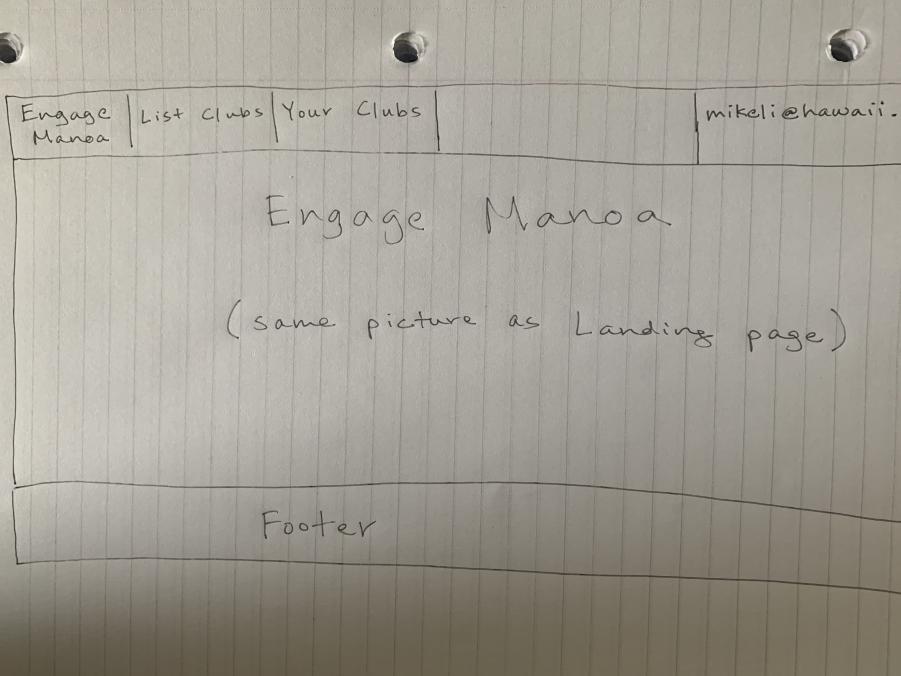 Engage
Manoa
List Clubs
Your Clubs
mikeli@hawaii.
Engage Manoa
(same picture as Landing page)
Footer